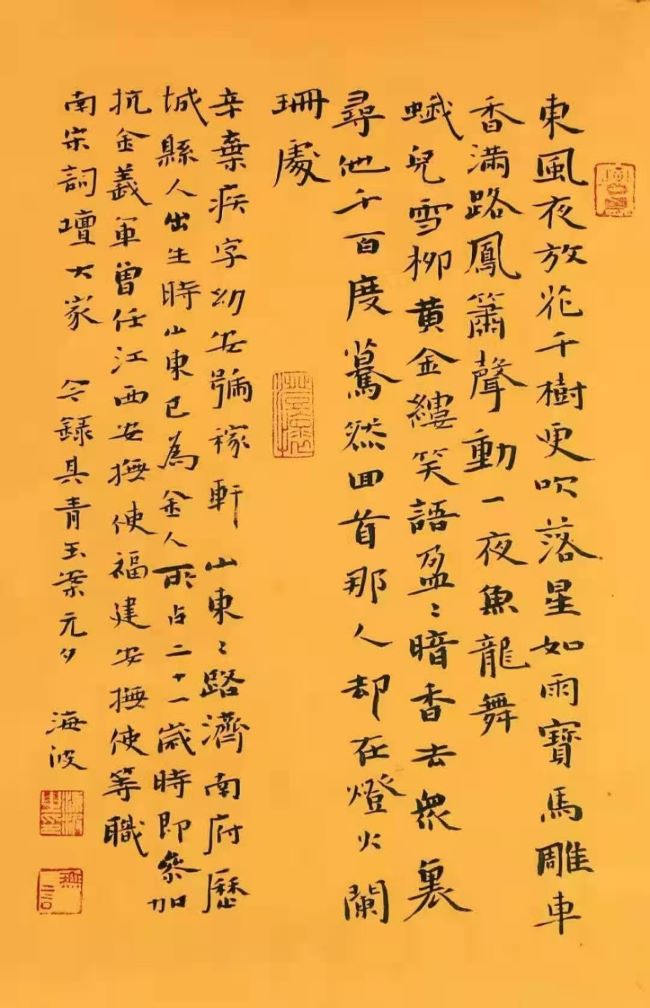 東風夜放花千樹更吹落星如雨寶馬雕車
香滿路鳳簫聲動一夜魚龍舞
蛾兒雪柳黃金縷笑語盈〻暗香去衆裏
尋他千百度驀然回首那人却在燈火闌
珊處
辛棄疾字幼安號稼軒 山東〻路濟南府歷
城縣人出生時山東已為金人所占二十一歲時即參加
抗金義軍曾任江西安撫使福建安撫使等職
南宋詞壇大家 今錄其青玉案元夕 海波